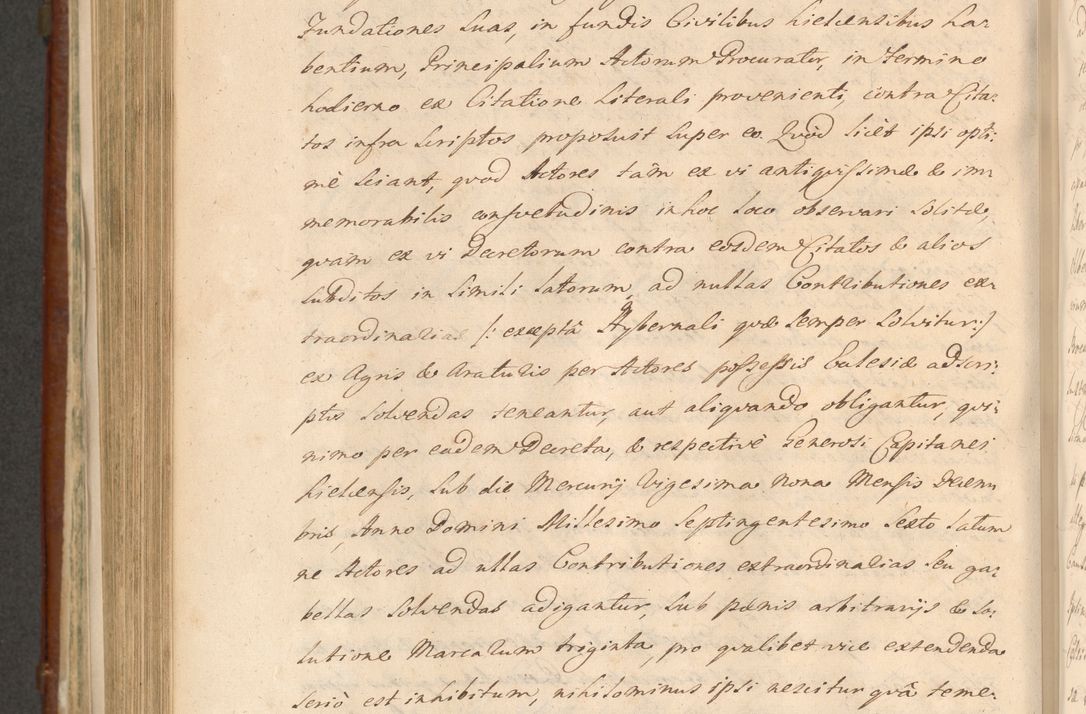 Fundationes suas, in fundis Civilibus Kielcensibus ha-
bentium, Principalium Actorum Procurator, in Termino
hodierno ex Citatione Literali provenienti, contra Cita-
tos infra Scriptos proposuit super eo. Quod licèt ipsi opti-
mè sciant, quod Actores tàm ex vi antiquissimæ & im-
memorabilis consvetudinis in hoc loco observari solitæ,
quàm ex vi Decretorum contra eosdem Citatos & alios
subditos in simili latorum, ad nullas Contributiones ex-
traordinarias /: exceptâ Hybernali quæ semper solvitur :/
ex Agris & Araturis per Actores possessis Ecclesiæ adscri-
ptis solvendas teneantur, aut aliqvando obligantur, qvi-
nimo per eadem Decreta, & respectivè Generosi Capitanei
Kielcensis, sub die Mercurij Vigesima Nona Mensis Decem-
bris, Anno Domini Millesimo Septingentesimo Sexto latum
ne Actores ad ullas Contributiones extraordinarias seu ga-
bellas solvendas adigantur, sub pænis arbitrarijs & so-
lutione Marcarum triginta, pro qvalibet vice extendenda
seriò est inhibitum, nihilominus ipsi nescitur qvâ teme-